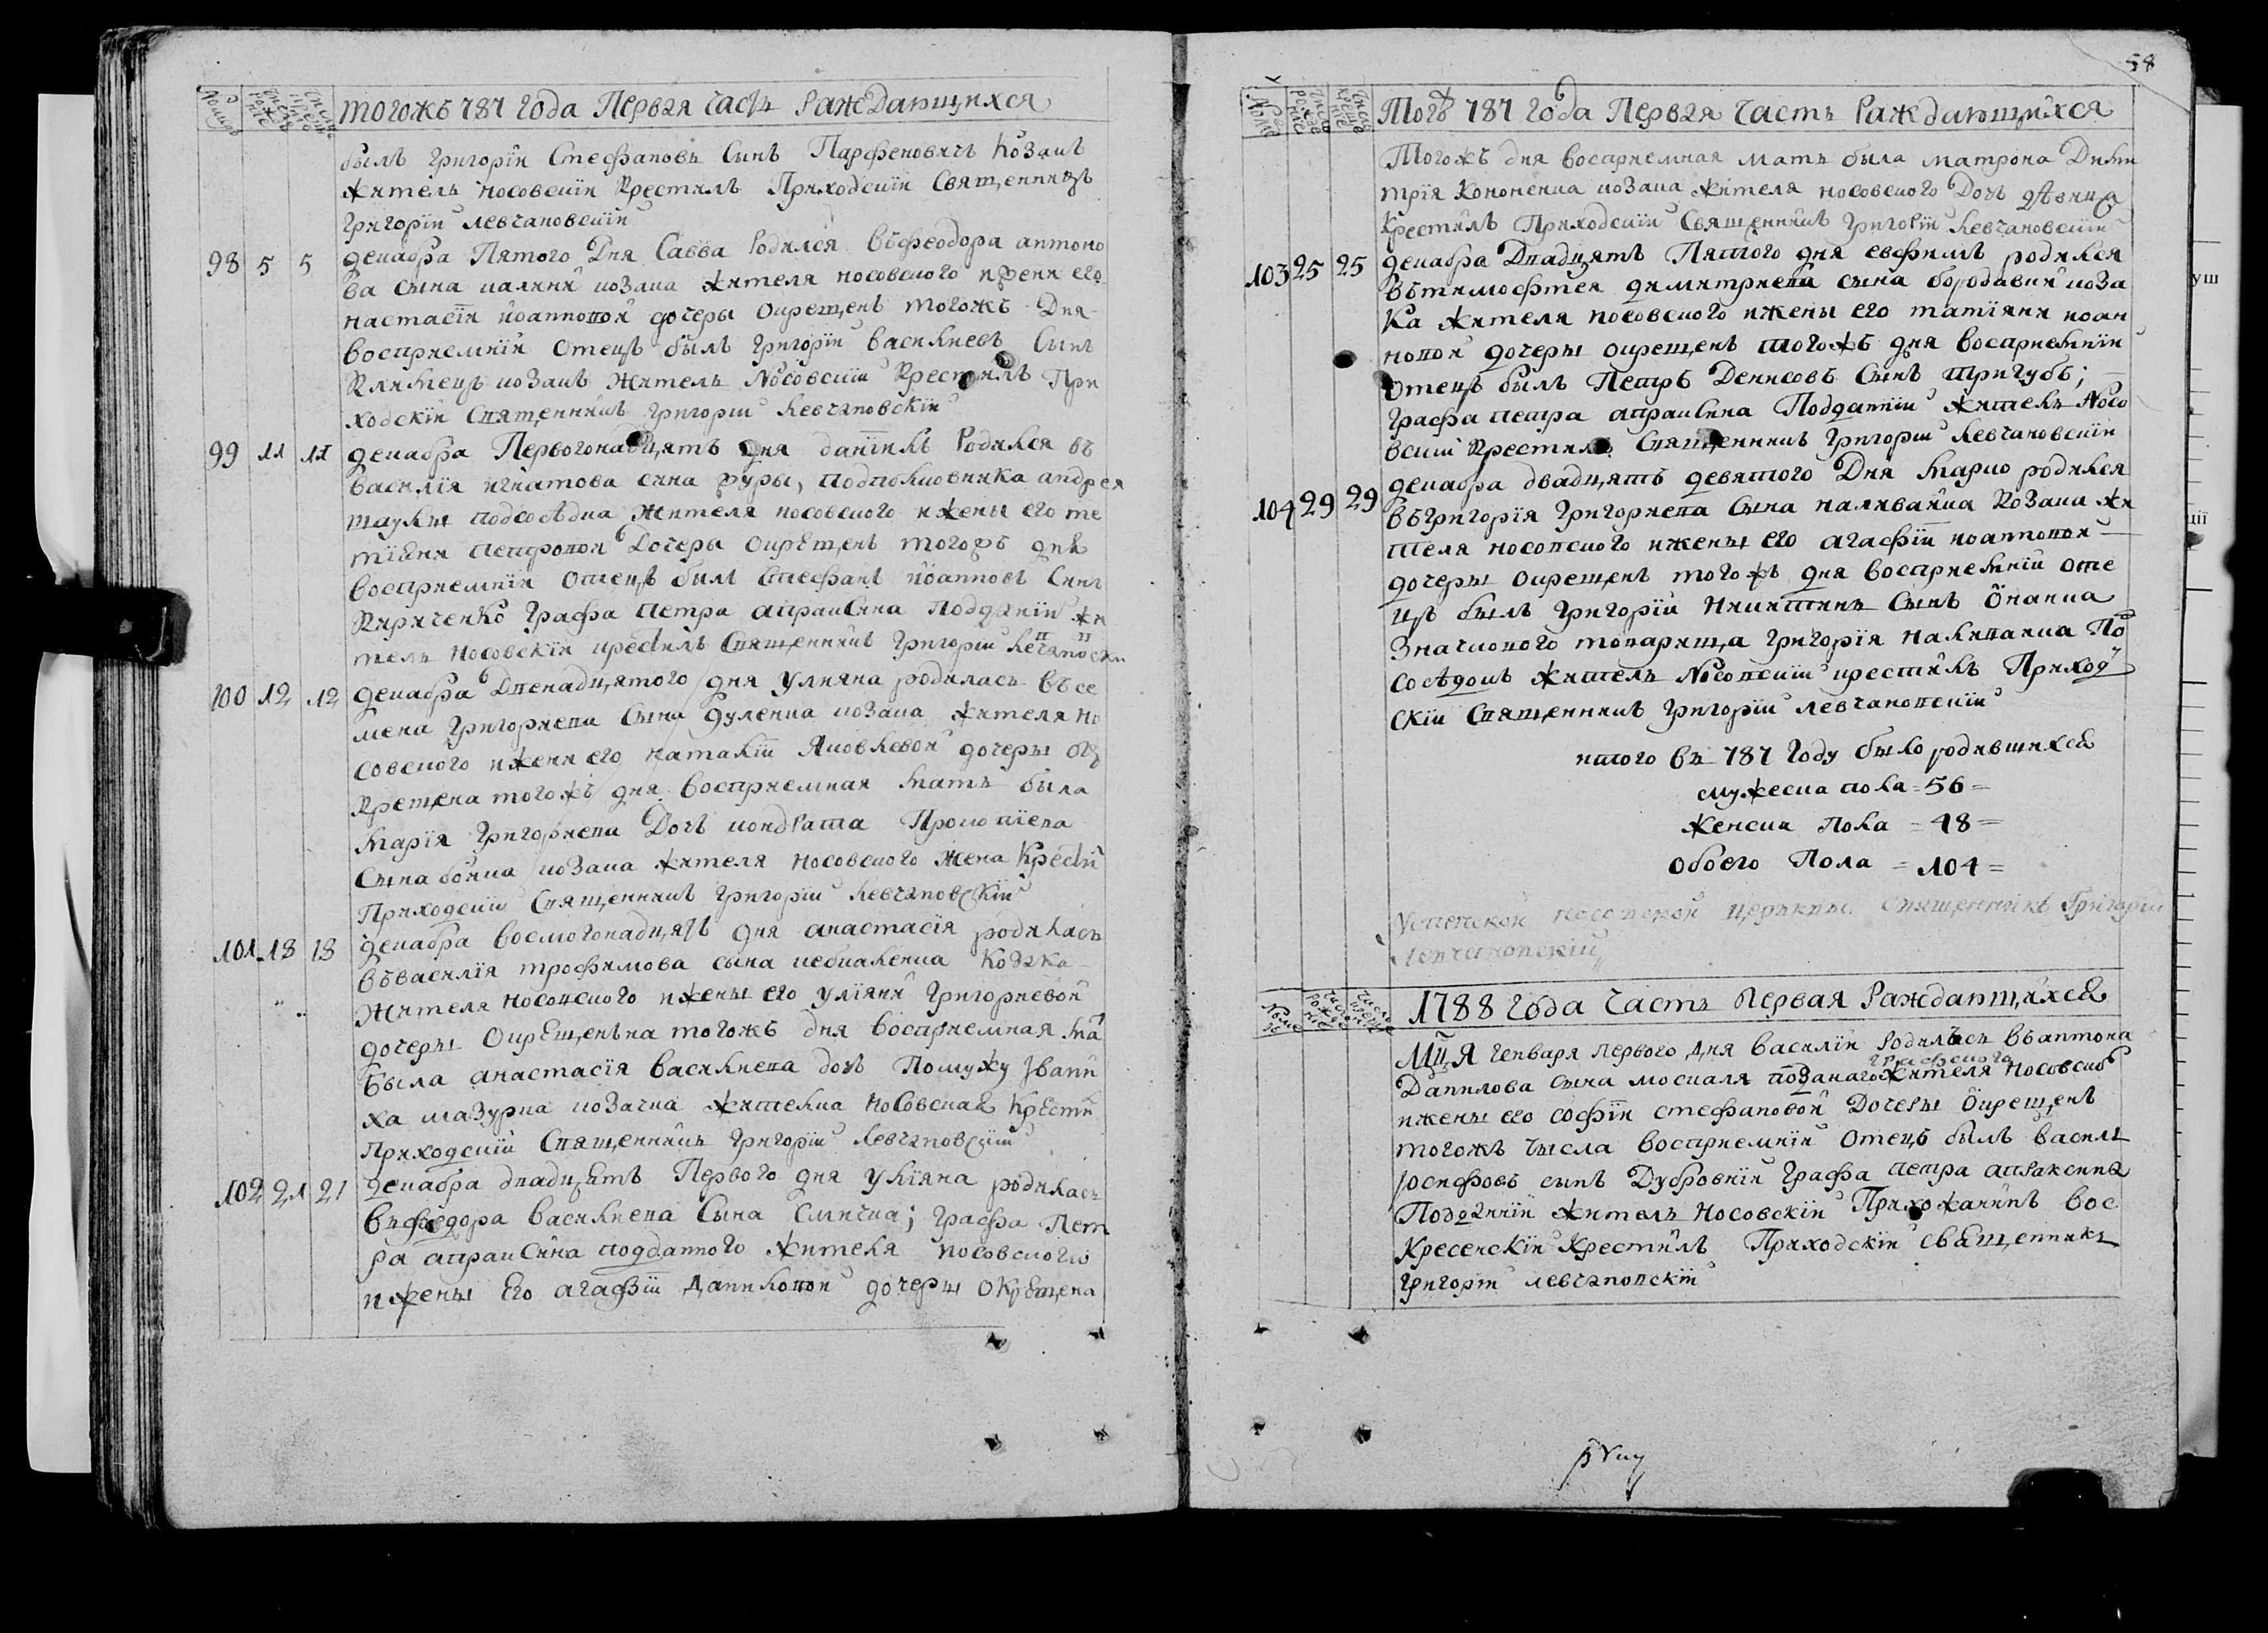 тогожъ 787 года Первая часть Раждающихся
былъ григорїи Стефановъ Сынъ Парфеновичъ козакъ
житель носовскїи крестилъ Приходскїи Священникъ
григорїи левчановскїи
98 5 5 декабра Пятого Дня Савва Родился въфеодора антоно
ва сына калини козака жителя носовского ижени его
настасїи иоанновои дочеры окрещенъ тогожъ Дня
восприемнїи отецъ былъ григорїи василиевъ Сынъ
Климецъ козакъ житель Носовскїи крестилъ При
ходскїи Священникъ григорїи левчановскїи
99 11 11 декабра Первогонадцять дня данїилъ Родился въ
василїя игнатова сина руры, подполковника андрея
шаулы подсосѣдка жителя носовского ижены его те
тїяни дочеры окрещенъ тогожъ дня
восприемнїи отецъ былъ Стефанъ їоанновъ Синъ
Кириченко графа петра апраксина подданїи жи
тель носовскїи крестилъ Священникъ григорїи левчановски
100 12 12 декабра Двенадцятого дня улияна родилась въсе
мена григориева Сына дуленка козака жителя но
совского ижени его наталїи Яковлевои дочеры ок
крещена тогожъ дня восприемная мать была
марїя григориева Дочъ кондрата Прокопїева
Сына боика козака жителя носовского жена крести
Приходскїи Священникъ григорїи левчановскїи
101 18 18 декабра восмогонадцять дня анастасїя родилась
въвасилїя трофимова сына козака
жителя носовского ижены его улїяни григориевои
дочеры окрещенъна тогожъ дня восприемная ма
была анастасїя василиева дочъ Помужу Івани
ха мазурка козачка жителка носовская крести
Приходскїи Священникъ григорїи левчановскїи
102 21 21 декабра двадцять Первого дня улїяна родилась
въфеодора василиева Сына слипча; графа Пет
ра апраксина подданного жителя носовского
ижены его агафїи даниловои дочеры окрещена
58
Тогожъ 787 года Первая часть Раждающихся
Тогожъ дня восприемная мать была матрона Дими
трїя кононенка козака жителя носовского дочъ дѣвица
Крестилъ Приходскїи Священникъ григорїи левчановскїи
103 25 25 декабра Двадцять Пятого дня евфимъ родился
вътимосфтея димитриева сына бородавки коза
ка жителя носовского ижены его татїяни иоан
новои дочеры окрещенъ тогожъ дня восприемнїи
отецъ былъ Петръ Денисовъ Сынъ тригубъ;
графа петра апраксина Подданнїи житель Носо
вскїи крестилъ Священникъ григорїи левчановскїи
104 29 29 декабра двадцять девятого Дня марко родился
въгригорїя григориева Сына наливаика козака жи
теля носовского ижены его агафїи иоанновои
дочеры окрещенъ тогожъ дня восприемнїи оте
цъ былъ григорїи Сынъ онанка
Значкового товарища григорїя наливаика По
сосѣдокъ житель Носовскїи крестилъ Приход
скїи Священникъ григорїи левчановскїи
итого въ 787 году было родившихся
мужеска пола = 56 =
женска Пола = 48 =
обоего Пола = 104 =
Успенскои носовскои церькви Священникъ Григорїи
Левчановскїи
1788 года Часть Первая Раждающихся
Мца генваря первого дня василїи родилъсь въантона
графского
Данилова сына москаля подданаго жителя носовског
ижены его софїи стефановои Дочеры окрещенъ
тогожъ числа восприемнїи отецъ былъ василь
іосифовъ сынъ Дубровнїи графа петра апраксина
Подданнїи житель носовскїи Прихожанинъ вос
кресенскїи крестилъ Приходскїи священникъ
григорїи левчановскїи